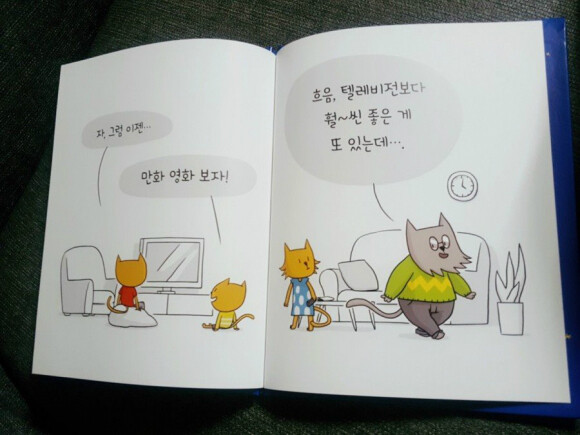 자, 그럼 이젠...
만화 영화 보자!
흐음, 텔레비전보다
훨~씬 좋은 게
또 있는데….